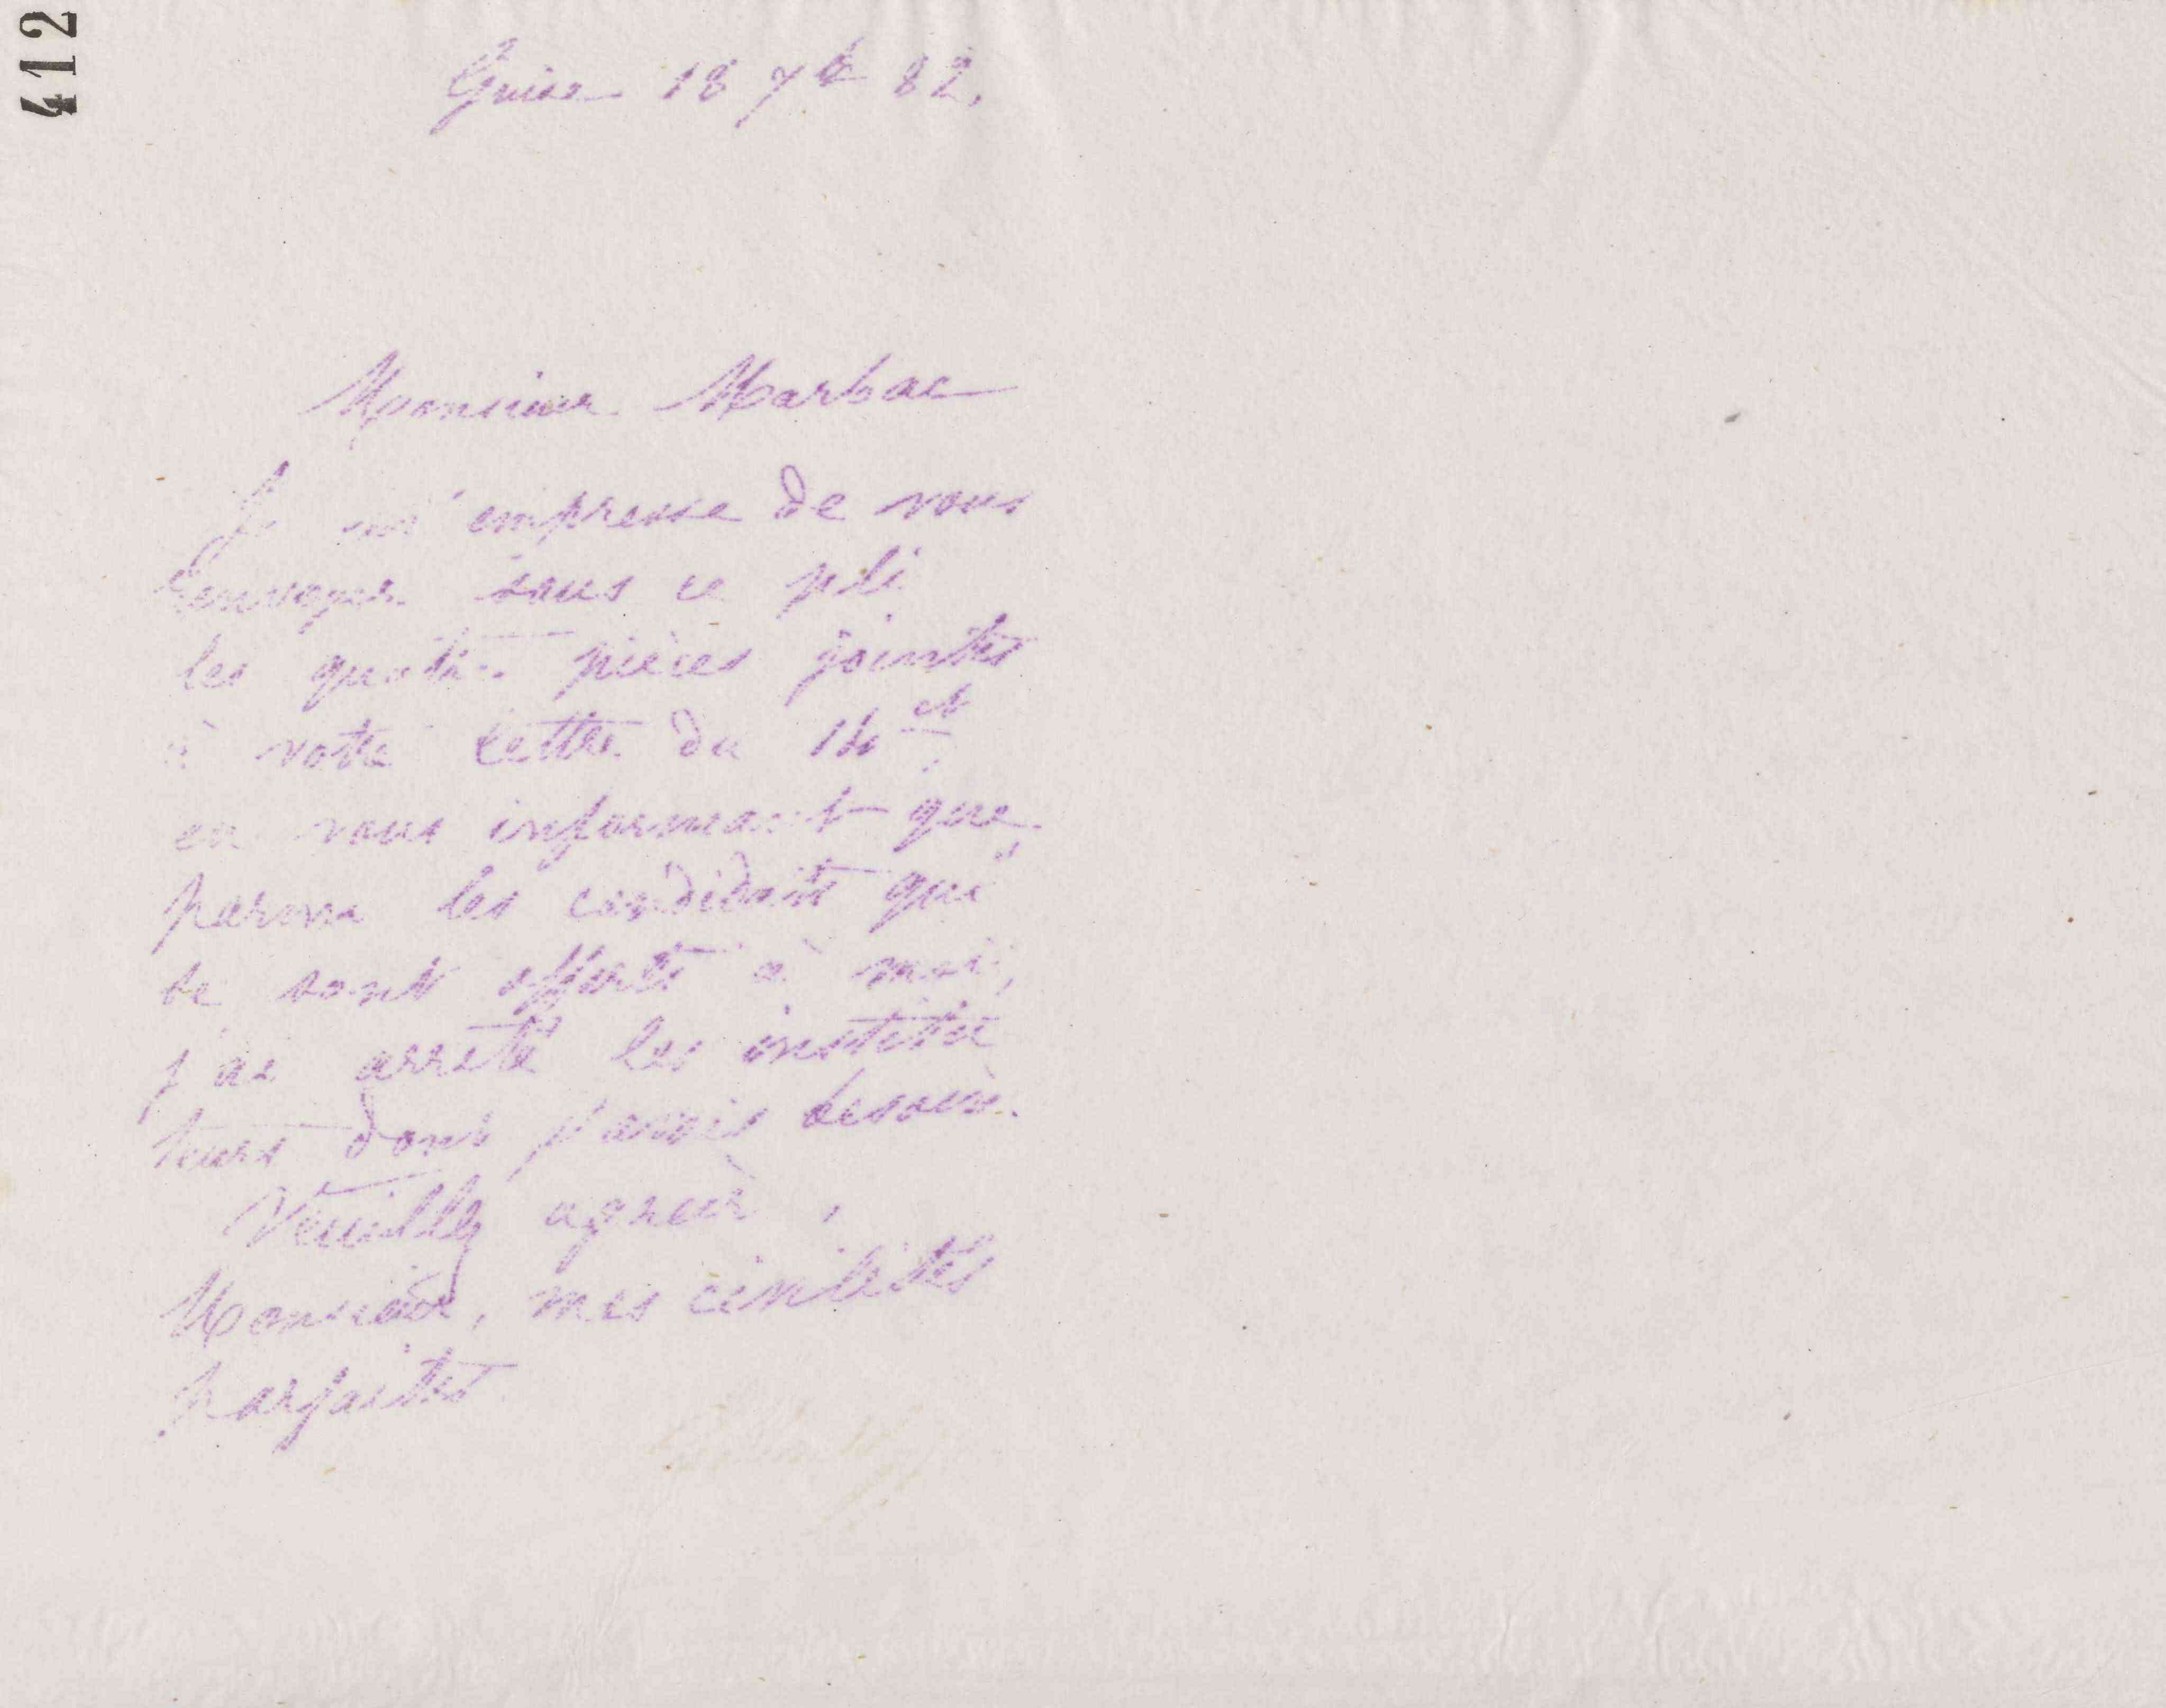 412
Guise 18 7bre 82.
Monsieur Marbac
Je m'empresse de vous
renvoyer sous ce pli
les quatre pièces jointes
à votre lettre du 14 ct
en vous informant que,
parmi les candidats qui
se sont offerts à moi,
j'ai arrêté les institu
teurs dont j'avais besoin.
Veuillez agréer,
Monsieur, mes civilités
parfaites